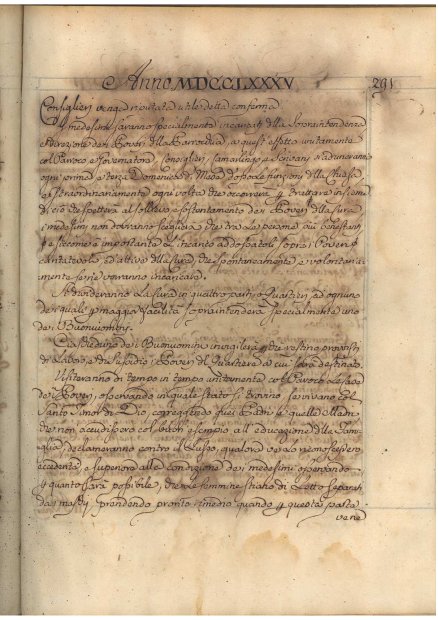 Anno MDCCLXXXV 291
Consiglieri venga riputata utile detta conferma.
I medesimi saranno specialmente incaricati della Sopraintendenza
e Direzione dei Poveri della Parrocchia, a quest'effetto unitamente
col Paroco e Governatore, Consiglieri, Camarlingo, e Scrivano s'aduneranno
ogni prima e terza Domenica di Mese dopo le funzioni della Chiesa,
e straordinariamente ogni volta che occorrerà per trattare insieme
di ciò che spetterà al sollievo, e sostentamento dei Poveri della Cura
i medesimi non dovranno scegliersi che tra le persone più benestanti
e siccome è importante l'incarico addossatoli sopra i Poveri
caritatevoli ed attivi della Cura, che spontaneamente e volontaria-
mente se ne vorranno incaricare.
Si divideranno la Cura in quattro parti, o Quartieri, ad ognuno
dei quali per maggior facilità soprintenderà specialmente uno
dei Buonuomini.
Ciascheduno dei Buonuomini invigilerà che restino provvisti
di Lavoro, e di sussidio i Poveri del Quartiere a cui sarà destinato.
Visiteranno di tempo in tempo unitamente col Paroco le Case
dei Poveri, osservando in quale stato si trovano, se vivano col
Santo Timor di Dio, correggendo quei Padri, e quelle Madri
che non accudissero coi debiti esempio all'educazione della Fami-
glia, declameranno contro il Lusso, qualora ve lo riconoscessero
eccedente, e superiore alla condizione dei medesimi operando
per quanto sarà possibile, che le femmine stiano di Letto separate
dai maschi, prendendo pronto rimedio quando per questa parte
vene